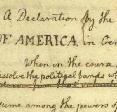 a Declaration by the
OF AMERICA, in Gen
When in the cours
dissolve the political bands wh
sume among the powers of